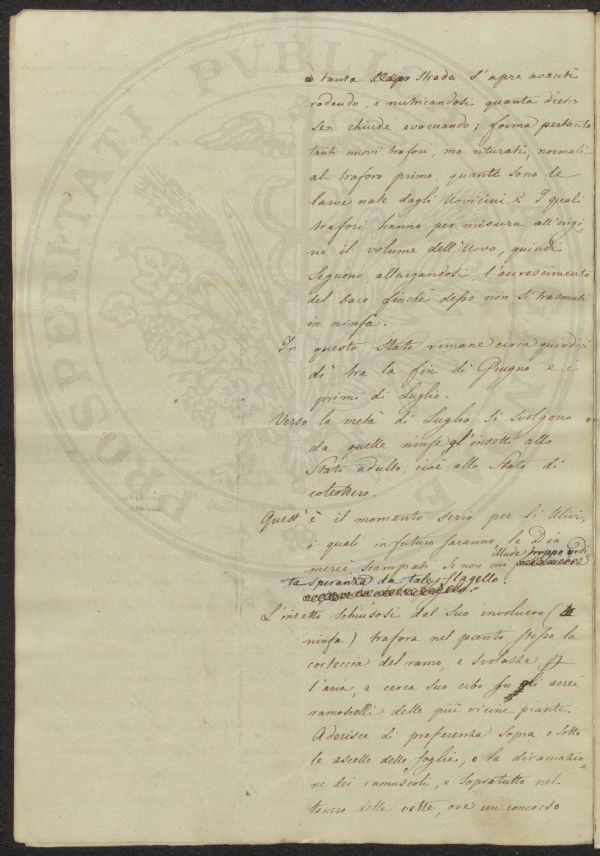 tanta strada s'apre avanti
rodendo, e nutricandosi quanta dietro
sen chiude evacuando; forma pertanto
tanti nuovi trafori, ma riturati, normali
al traforo primo, quante sono le
larve nate dagli Uovicini. I quali
trafori hanno per misura all'origi-
ne il volume dell'Uovo, quindi
seguono allargandosi l'accrescimento
del baco finchè desso non si trasmuti
in ninfa.
In questo stato rimane circa quindici
dì tra la fin di Giugno e i
primi di Luglio.
Verso la metà di Luglio si svolgono
da quelle ninfe gl'insetti allo
stato adulto, cioè allo stato di
coleottero.
Quest'è il momento serio per li Ulivi,
i quali in futuro saranno, la Dio
mercè, scampati se non mi illude troppo ardi-
ta speranza da tale flagello.
L'insetto schiusosi dal suo involucro (
ninfa) trafora nel punto stesso la
corteccia del ramo, e svolazza p
l'aria, e cerca suo cibo fu gli aerei
ramoscelli delle più vicine piante.
Aderisce di preferenza sopra o sotto
le ascelle delle foglie, o la diramazio-
ne dei ramuscoli, e sopratutto nel
tenero delle vette, ove un concorso
PROSPERITATI PVBLICAE